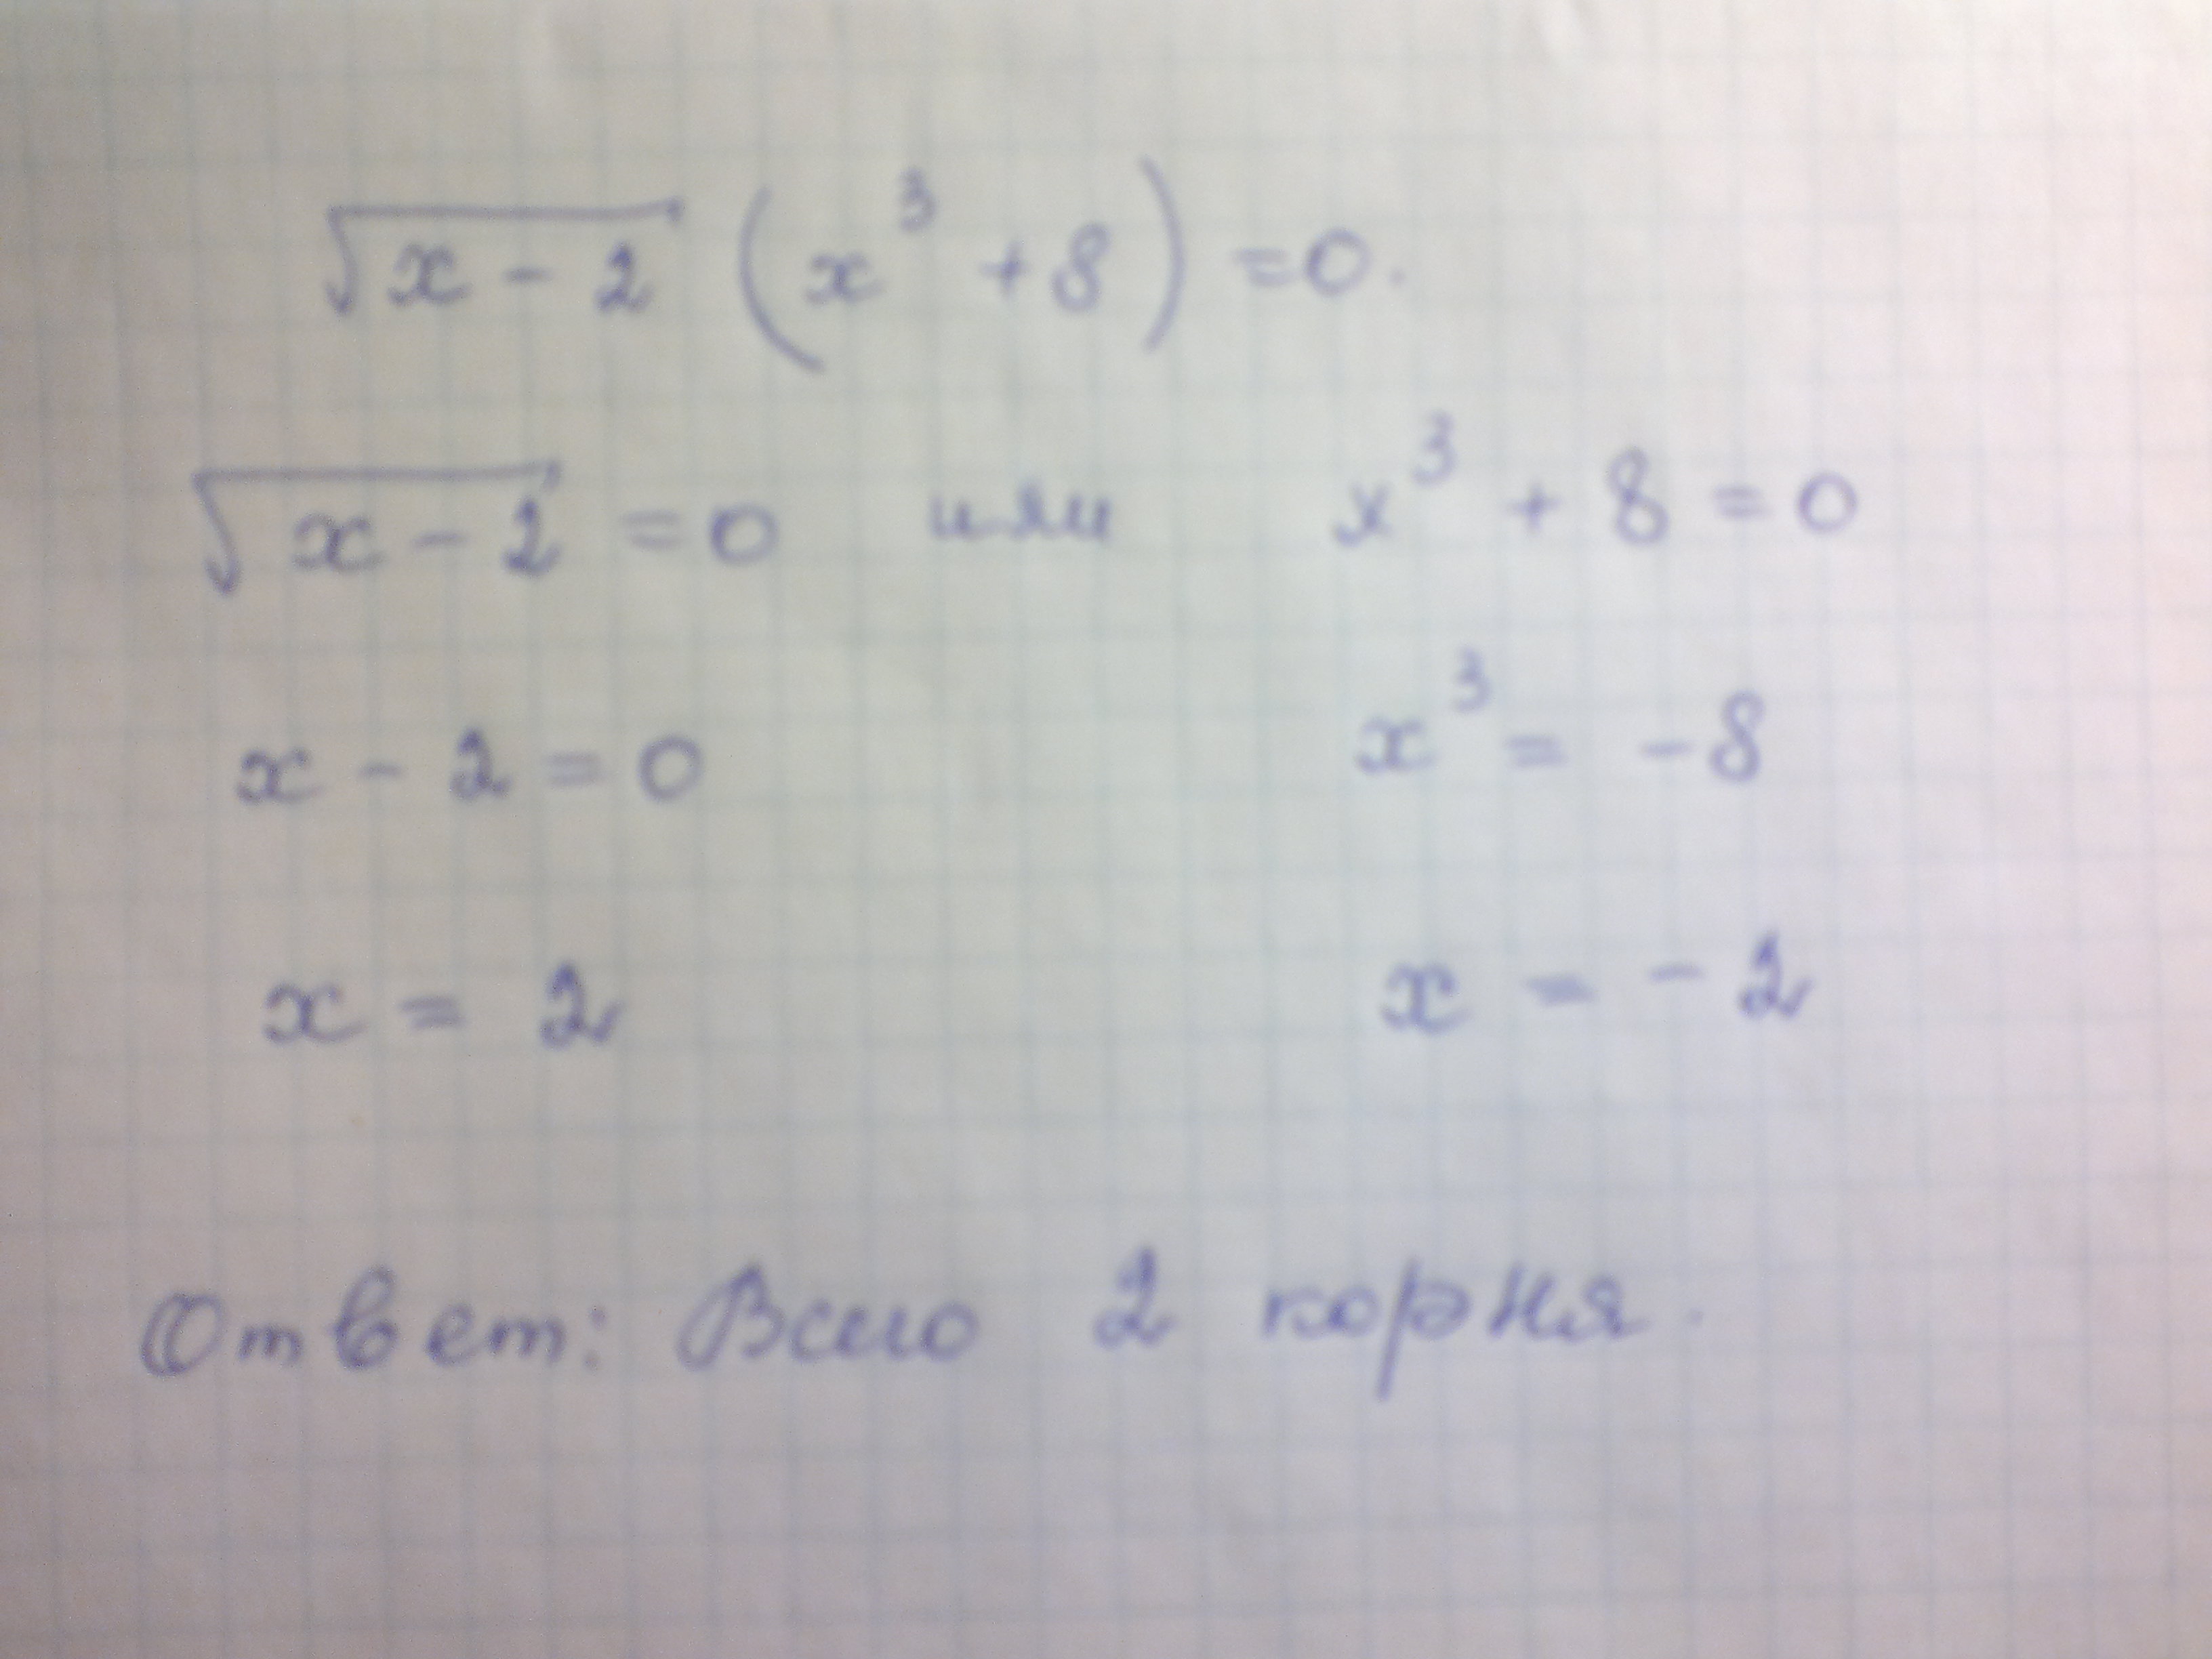 √(x - 2) (x³ + 8) = 0.
√(x - 2) = 0 или x³ + 8 = 0
x - 2 = 0 x³ = -8
x = 2 x = -2
Ответ: Всего 2 корня.